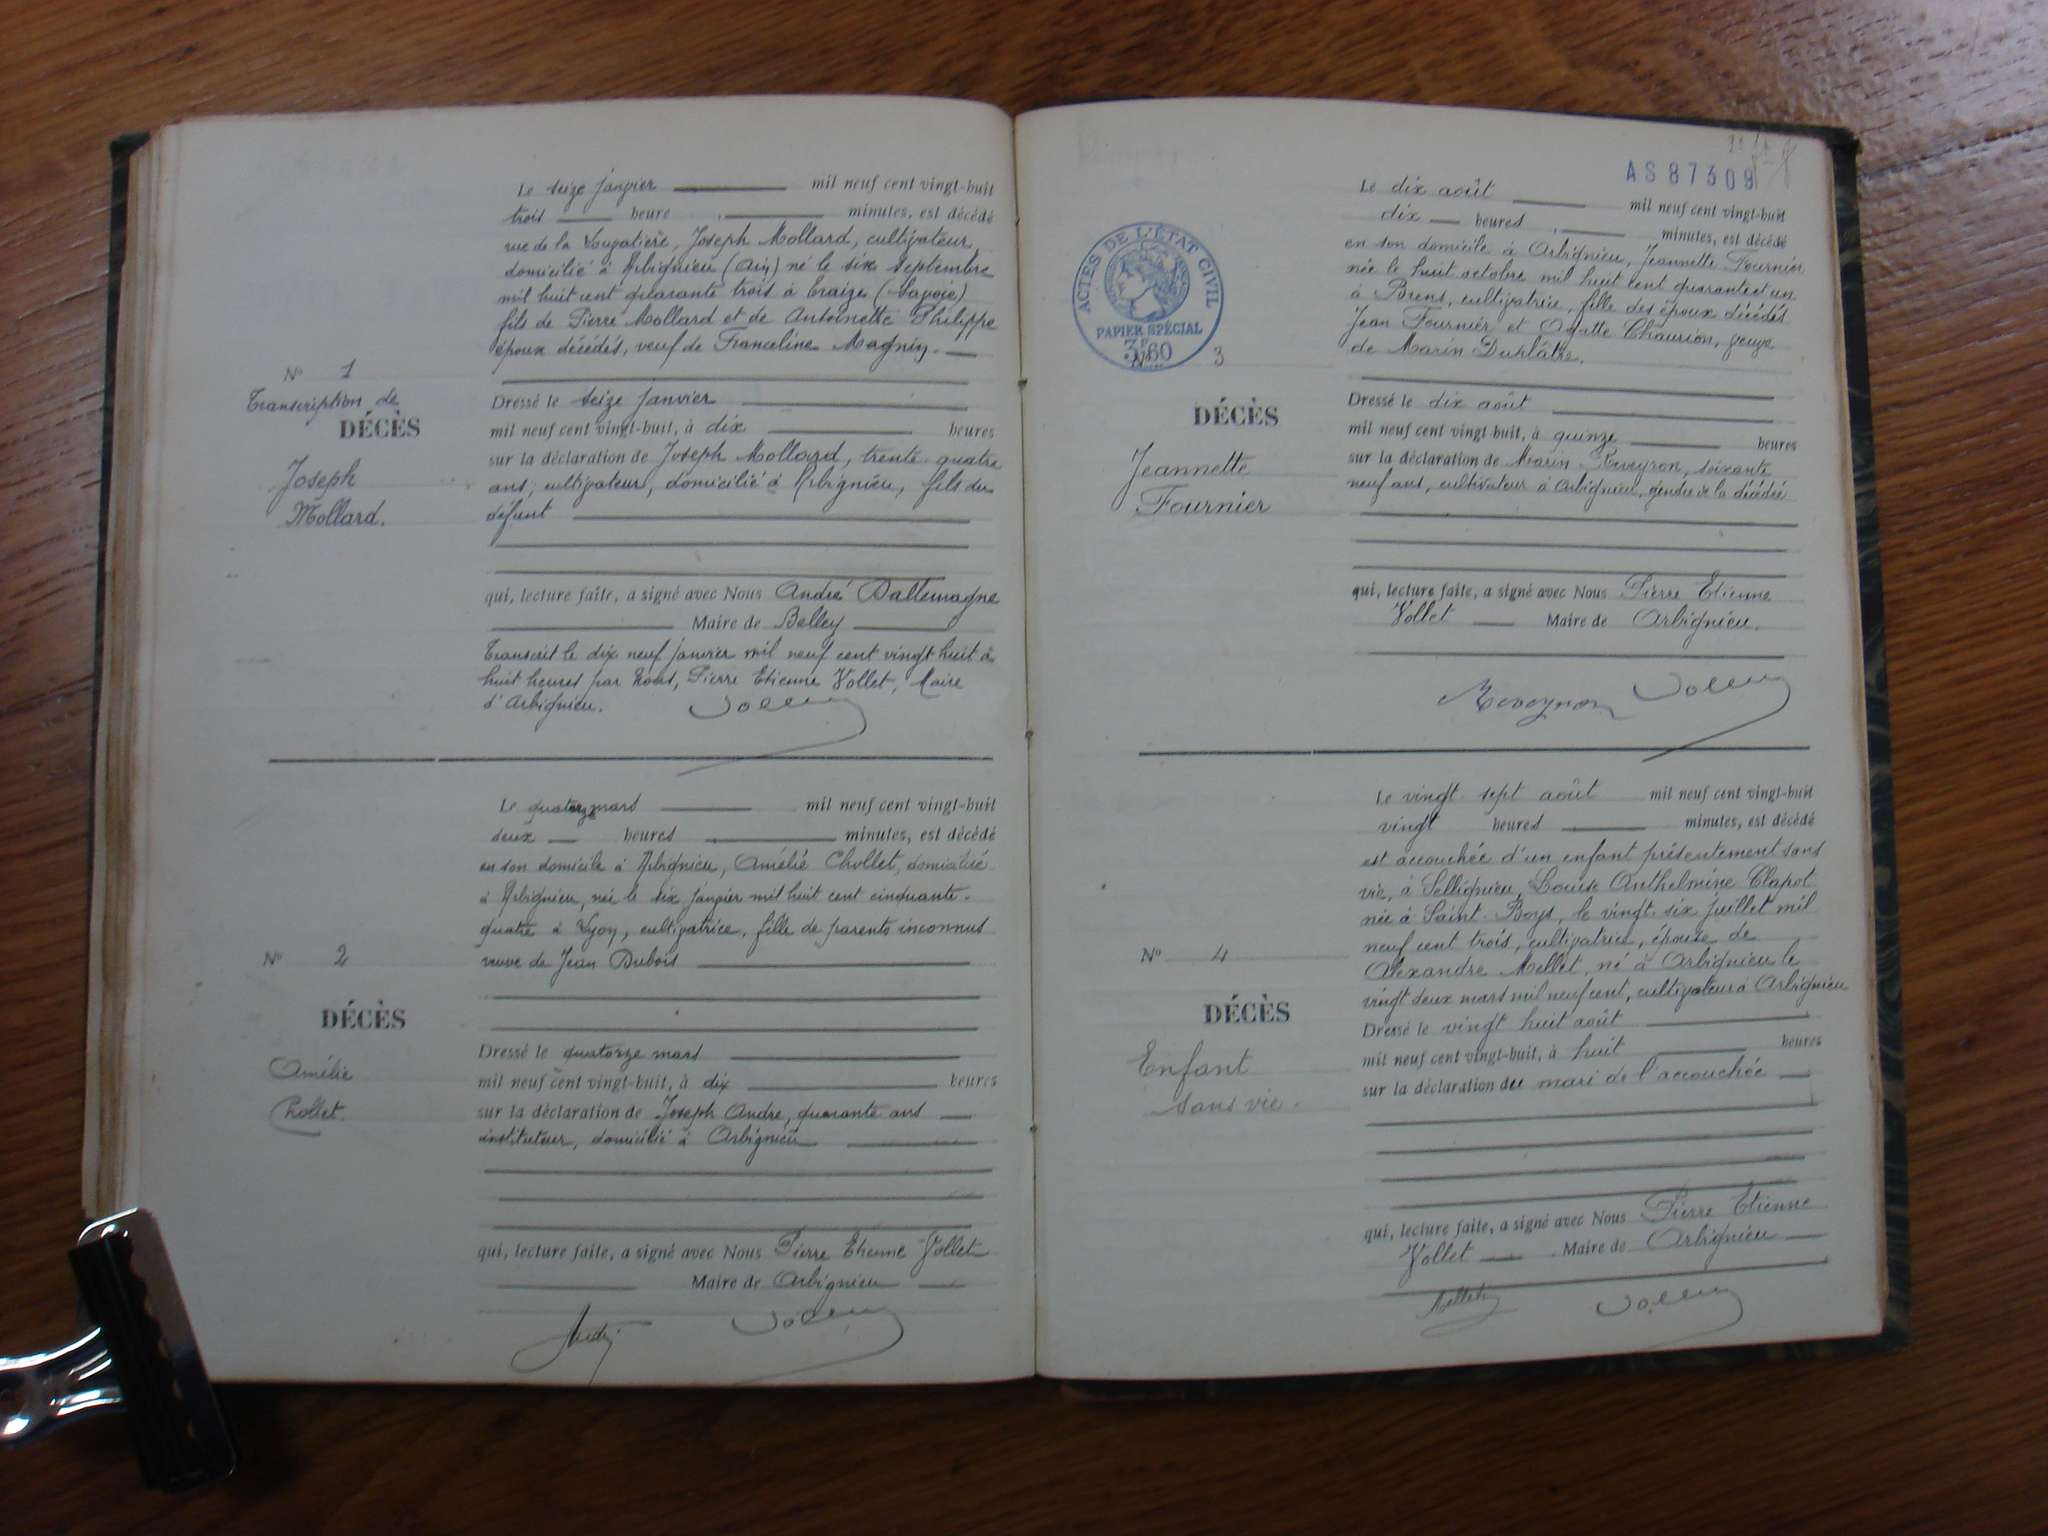 Le seize janvier mil neuf cent vingt-huit
trois heure , minutes, est décédé
rue de la Joseph Mollard, cultivateur,
domicilié à Arbignieu (Ain) né le six Septembre
mil huit cent quarante trois à Traize (Savoie)
fils de Pierre Mollard et de Antoinette Philippe
époux décédés, veuf de Franceline Magnin.
N° 1
Transcription de
DÉCÈS
Joseph
Mollard.
Dressé le seize janvier
mil neuf cent vingt-huit, à dix heures
sur la déclaration de Joseph Mollard, trente quatre
ans, cultivateur, domicilié à Arbignieu, fils du
défunt
qui, lecture faite, a signé avec Nous André Dallemagne
Maire de Belley
Transcrit le dix neuf janvier mil neuf cent vingt huit à
huit heures par Nous, Pierre Etienne Vollet, Maire
d'Arbignieu.
Vollet
Le quatorze mars mil neuf cent vingt-huit
deux heures , minutes, est décédé
en son domicile à Arbignieu, Amélie Chollet, domicilié
à Arbignieu, née le six janvier mil huit cent cinquante-
quatre à Lyon, cultivatrice, fille de parents inconnus
veuve de Jean Dubois
N° 2
DÉCÈS
Amélie
Chollet.
Dressé le quatorze mars
mil neuf cent vingt-huit, à dix heures
sur la déclaration de Joseph André, quarante ans
instituteur, domicilié à Arbignieu
qui, lecture faite, a signé avec Nous Pierre Etienne Vollet
Maire de Arbignieu
André Vollet
AS 87309
Le dix août mil neuf cent vingt-huit
dix heures , minutes, est décédé
en son domicile à Arbignieu, Jeannette Fournier
née le huit octobre mil huit cent quarante et un
à Brens, cultivatrice, fille des époux décédés
Jean Fournier et Agatte Chaurion, veuve
de Marin Duplâtre.
ACTES DE L'ÉTAT CIVIL
PAPIER SPÉCIAL
3F60
N° 3
DÉCÈS
Jeannette
Fournier
Dressé le dix août
mil neuf cent vingt-huit, à quinze heures
sur la déclaration de Marin Reveyron, soixante
neuf ans, cultivateur à Arbignieu, gendre de la décédée
qui, lecture faite, a signé avec Nous Pierre Etienne
Vollet Maire de Arbignieu.
Reveyron Vollet
Le vingt-sept août mil neuf cent vingt-huit
vingt heures minutes, est décédé
est accouchée d'un enfant présentement sans
vie, à Sillignieu, Louise Anthelmine Clapot
née à Saint-Boys, le vingt-six juillet mil
neuf cent trois, cultivatrice, épouse de
Alexandre Mellet, né à Arbignieu le
vingt deux mars mil neuf cent, cultivateur à Arbignieu
N° 4
DÉCÈS
Enfant
sans vie.
Dressé le vingt huit août
mil neuf cent vingt-huit, à huit heures
sur la déclaration du mari de l'accouchée
qui, lecture faite, a signé avec Nous Pierre Etienne
Vollet Maire de Arbignieu
Mellet Vollet